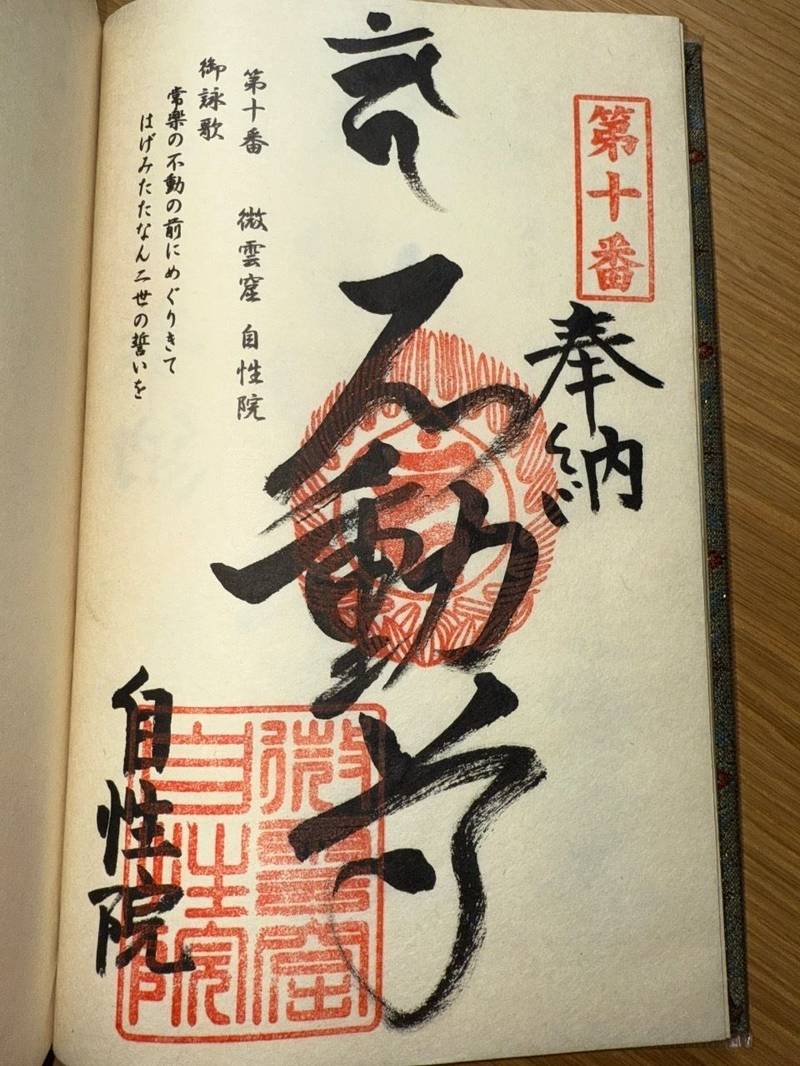 第十番
奉納
不動尊
自性院
微雲窟
自性院
第十番 微雲窟 自性院
御詠歌
常楽の不動の前にめぐりきて
はげみたたなん二世の誓いを